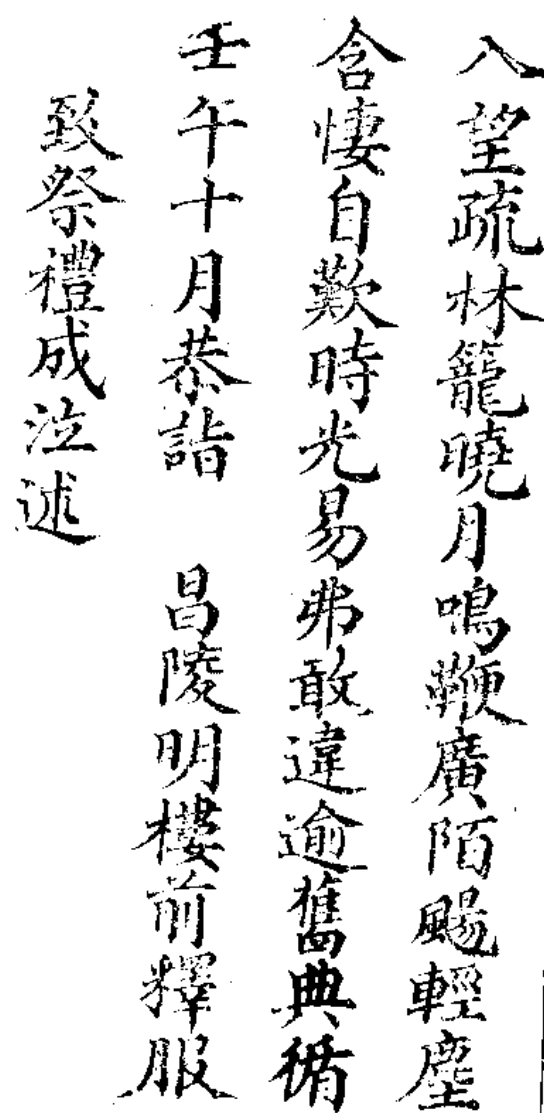 入望疏林籠曉月鳴鞭廣陌颺輕塵
含悽自歎時光易弗敢違逾舊典循
壬午十月恭詣　昌陵明樓前釋服
致祭禮成泣述